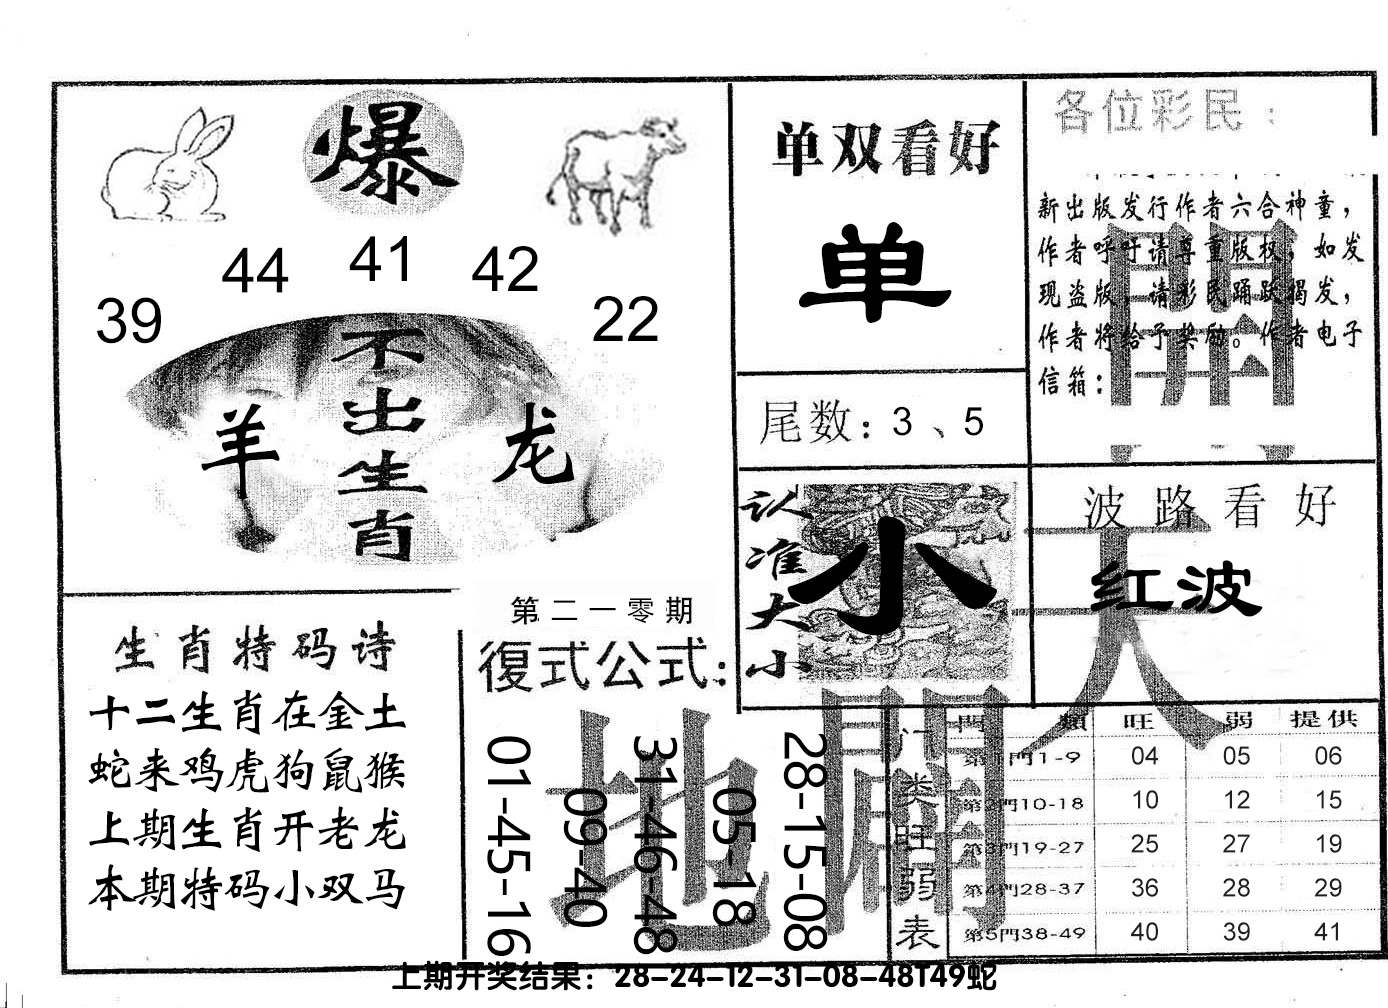 爆
39 44 41 42 22
羊 不出生肖 龙
单双看好
单
尾数：3、5
各位彩民：
新出版发行作者六合神童，
作者呼吁请尊重版权，如发
现盗版，请彩民踊跃揭发，
作者将给予奖励。作者电子
信箱：
認准大小
小
波路看好
红波
天
地
生肖特码诗
十二生肖在金土
蛇来鸡虎狗鼠猴
上期生肖开老龙
本期特码小双马
第二一零期
復式公式：
01-45-16
09-40
31-46-48
05-18
28-15-08
门类旺弱表
門類 旺 弱 提供
第1門1-9 04 05 06
第2門10-18 10 12 15
第3門19-27 25 27 19
第4門28-37 36 28 29
第5門38-49 40 39 41
上期开奖结果：28-24-12-31-08-48T49蛇